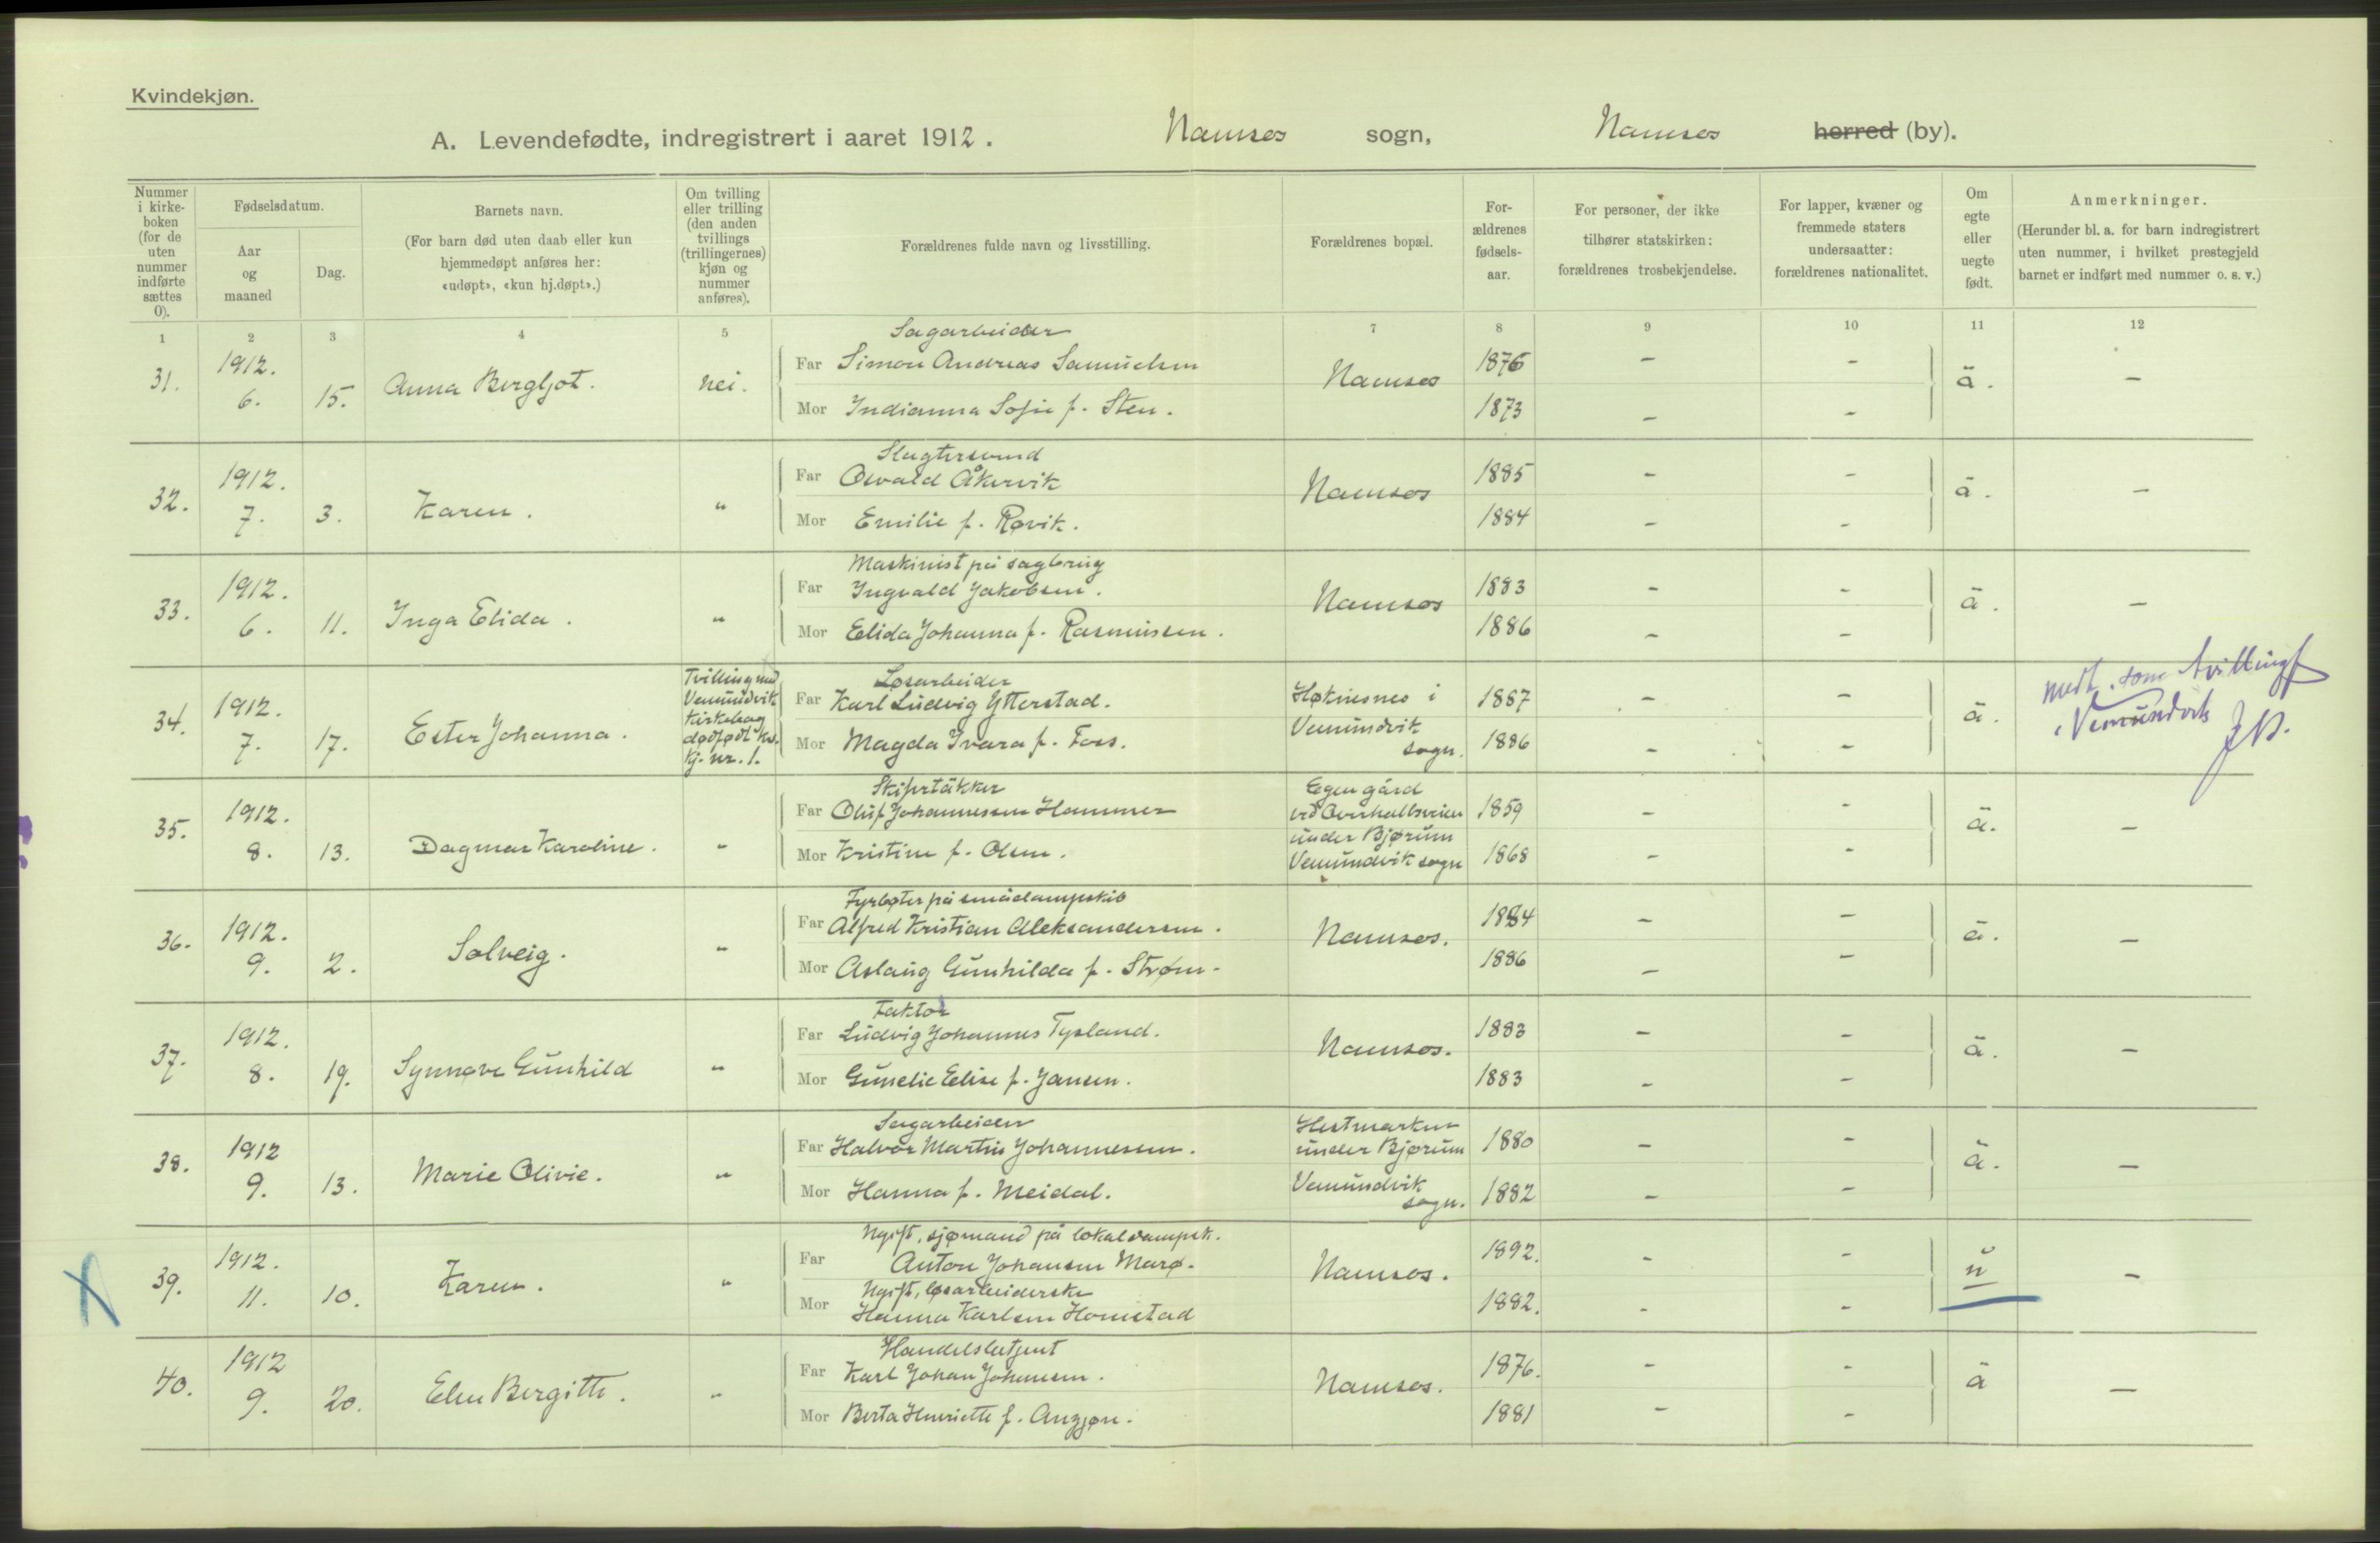 Kvindekjøn.
A. Levendefødte, indregistrert i aaret 1912. Namsos sogn, Namsos herred (by).
Nummer i kirkeboken (for de uten nummer indførte sættes 0).
Fødselsdatum.
Aar og maaned
Dag.
Barnets navn.
(For barn død uten daab eller kun hjemmedøpt anføres her: «udøpt», «kun hj.døpt».)
Om tvilling eller trilling (den anden tvillings (trillingernes) kjøn og nummer anføres).
Forældrenes fulde navn og livsstilling.
Forældrenes bopæl.
For-ældrenes fødsels-aar.
For personer, der ikke tilhører statskirken: forældrenes trosbekjendelse.
For lapper, kvæner og fremmede staters undersaatter: forældrenes nationalitet.
Om egte eller uegte født.
Anmerkninger.
(Herunder bl. a. for barn indregistrert uten nummer, i hvilket prestegjeld barnet er indført med nummer o. s. v.)
1 2 3 4 5 7 8 9 10 11 12
Sagarbeider
31. 1912. 6. 15. Anna Bergljot. nei. Far Simon Andreas Samuelsen Namsos 1876 - - ä. -
Mor Indianna Sofie f. Sten. 1873 - -
Slagtersvend
32. 1912. 7. 3. Karen. " Far Osvald Åkervik Namsos 1885 - - ä. -
Mor Emilie f. Røvik. 1884 - -
Maskinist på sagbrug
33. 1912. 6. 11. Inga Elida. " Far Ingvald Jakobsen. Namsos 1883 - - ä. -
Mor Elida Johanna f. Rasmussen. 1886 - -
Løsarbeider
34. 1912. 7. 17. Ester Johanna. Tvilling med Vemundvik kirkebog dødfødt kv. kj. nr. 1. Far Karl Ludvig Ytterstad. Høknesnes i Vemundvik sogn. 1887 - - ä. medt. som tvilling i Vemundvik
Mor Magda Ivara f. Foss. 1886 - -
Skifertäkker
35. 1912. 8. 13. Dagmar Karoline. " Far Oluf Johannessen Hammer Egen gård ved Overhallsveien under Bjørum Vemundvik sogn 1859 - - ä. -
Mor Kristine f. Olsen. 1868 - -
Fyrbøter på smådampskib
36. 1912. 9. 2. Solveig. " Far Alfred Kristian Aleksandersen. Namsos. 1884 - - ä. -
Mor Aslaug Gunhilda f. Strøm. 1886 - -
Faktor
37. 1912. 8. 19. Synnøve Gunhild " Far Ludvig Johannes Tysland. Namsos. 1883 - - ä. -
Mor Gunelie Elise f. Jansen. 1883 - -
Sagarbeider
38. 1912 9. 13. Marie Olivie. " Far Halvor Martin Johannessen. Hestmarken under Bjørum Vemundvik sogn. 1880 - - ä. -
Mor Hanna f. Meidal. 1882 - -
Ugift, sjømand på lokaldampsk.
39. 1912. 11. 10. Karen. " Far Anton Johansen Marø. Namsos. 1892. - - u -
Ugift, løsarbeiderske
Mor Hanna Karlsen Homstad 1882. - -
Handelsbetjent
40. 1912 9. 20. Elen Bergitte. " Far Karl Johan Johansen. Namsos. 1876. - - ä -
Mor Berta Henriette f. Anzjøn. 1881 - -